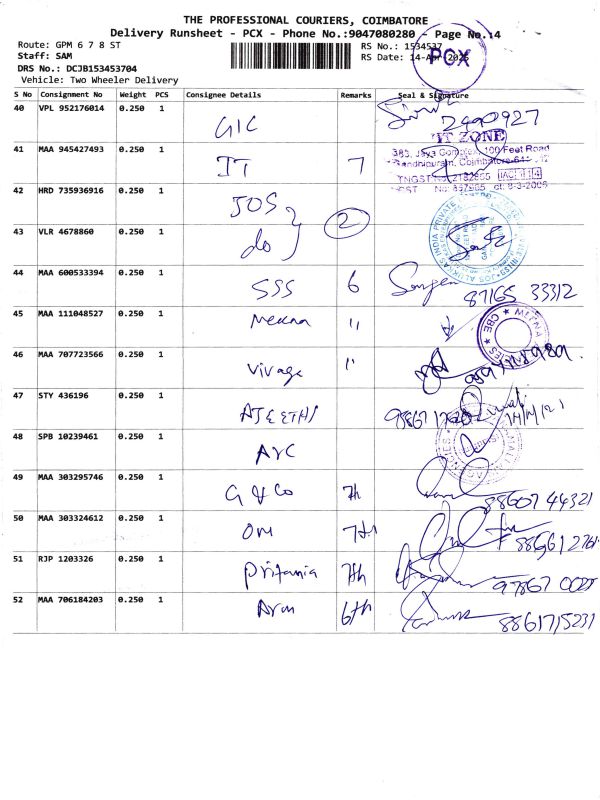 THE PROFESSIONAL COURIERS, COIMBATORE
Delivery Runsheet - PCX - Phone No.:9047080280 - Page No.:4
Route: GPM 6 7 8 ST
RS No.: 1534537
Staff: SAM
RS Date: 14-Apr-2025
PCX
DRS No.: DCJB153453704
Vehicle: Two Wheeler Delivery
S No Consignment No Weight PCS Consignee Details Remarks Seal & Signature
40 VPL 952176014 0.250 1 GIC 2490927
41 MAA 945427493 0.250 1 IT 7
IT ZONE
383, Jaya Complex, 100 Feet Road
Gandhipuram, Coimbatore-641 012
42 HRD 735936916 0.250 1 JOS 2
43 VLR 4678860 0.250 1 do
44 MAA 600533394 0.250 1 SSS 6 87165 33312
45 MAA 111048527 0.250 1 Meena "
46 MAA 707723566 0.250 1 Vivage "
47 STY 436196 0.250 1 AJEETHI
48 SPB 10239461 0.250 1 AVC
49 MAA 303295746 0.250 1 G & Co 7h 88607 44321
50 MAA 303324612 0.250 1 Om 7th
51 RJP 1203326 0.250 1 Pritania 7th
52 MAA 706184203 0.250 1 Arm 6th 8861715231